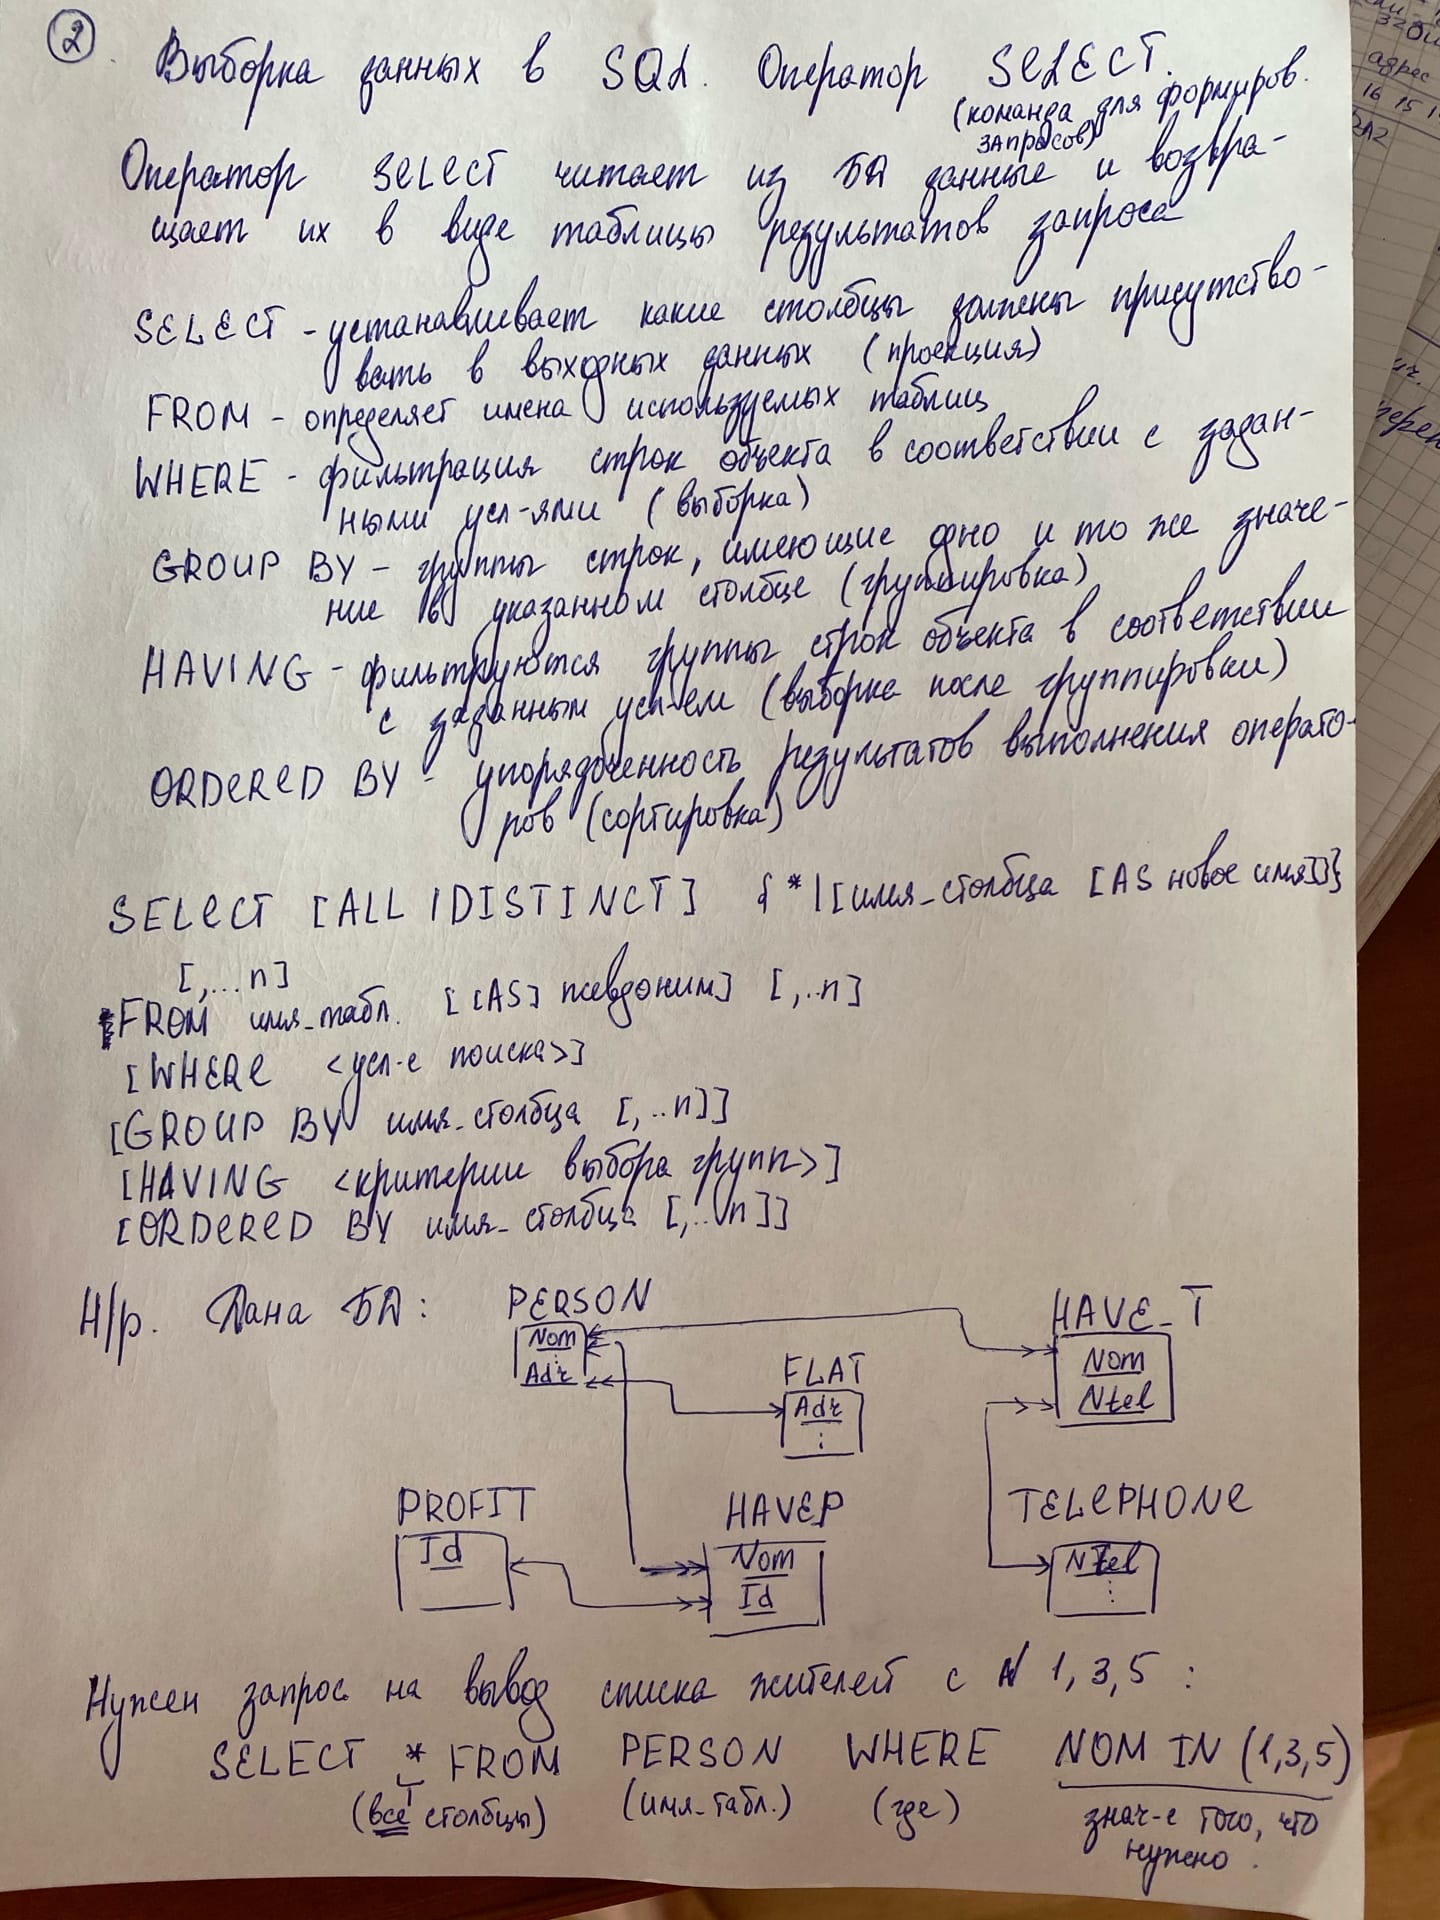 2
Выборка данных в SQL. Оператор SELECT.
(команда для формиров.
запросов)
Оператор SELECT читает из БД данные и возвра-
щает их в виде таблицы результатов запроса
SELECT - устанавливает какие столбцы должны присутство-
вать в выходных данных (проекция)
FROM - определяет имена используемых таблиц
WHERE - фильтрация строк объекта в соответствии с задан-
ными усл-ями (выборка)
GROUP BY - группы строк, имеющие одно и то же значе-
ние в указанном столбце (группировка)
HAVING - фильтруются группы строк объекта в соответствии
с заданным усл-ем (выборка после группировки)
ORDERED BY - упорядоченность результатов выполнения операто-
ров (сортировка)
SELECT [ALL | DISTINCT] { * | [имя_столбца [AS новое имя]]}
[,...n]
FROM имя_табл. [[AS] псевдоним] [,..n]
[WHERE <усл-е поиска>]
[GROUP BY имя_столбца [,..n]]
[HAVING <критерии выбора групп>]
[ORDERED BY имя_столбца [,..n]]
Н/р. Дана БД: PERSON
Nom
Adr
HAVE_T
Nom
Ntel
FLAT
Adr
PROFIT
Id
HAVEP
Nom
Id
TELEPHONE
Ntel
Нужен запрос на вывод списка жителей с N 1, 3, 5 :
SELECT * FROM PERSON WHERE NOM IN (1,3,5)
(все столбцы) (имя_табл.) (где) знач-е того, что
нужно.
адрес
16 15